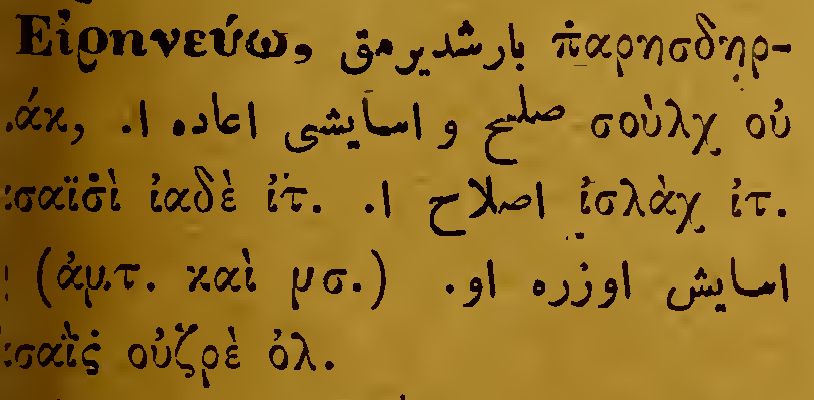 Εἰρηνεύω, بارشدیرمق π̇αρησδηρ-
.άκ, صلح و اسایشی اعاده ا. σοὺλχ οὐ
σαϊσ̇ὶ ἰαδὲ ἰτ. اصلاح ا. ἰσλὰχ ἰτ.
(ἀμ.τ. καὶ μσ.) اسایش اوزره او.
σαῒς̇ οὐζρὲ ὀλ.